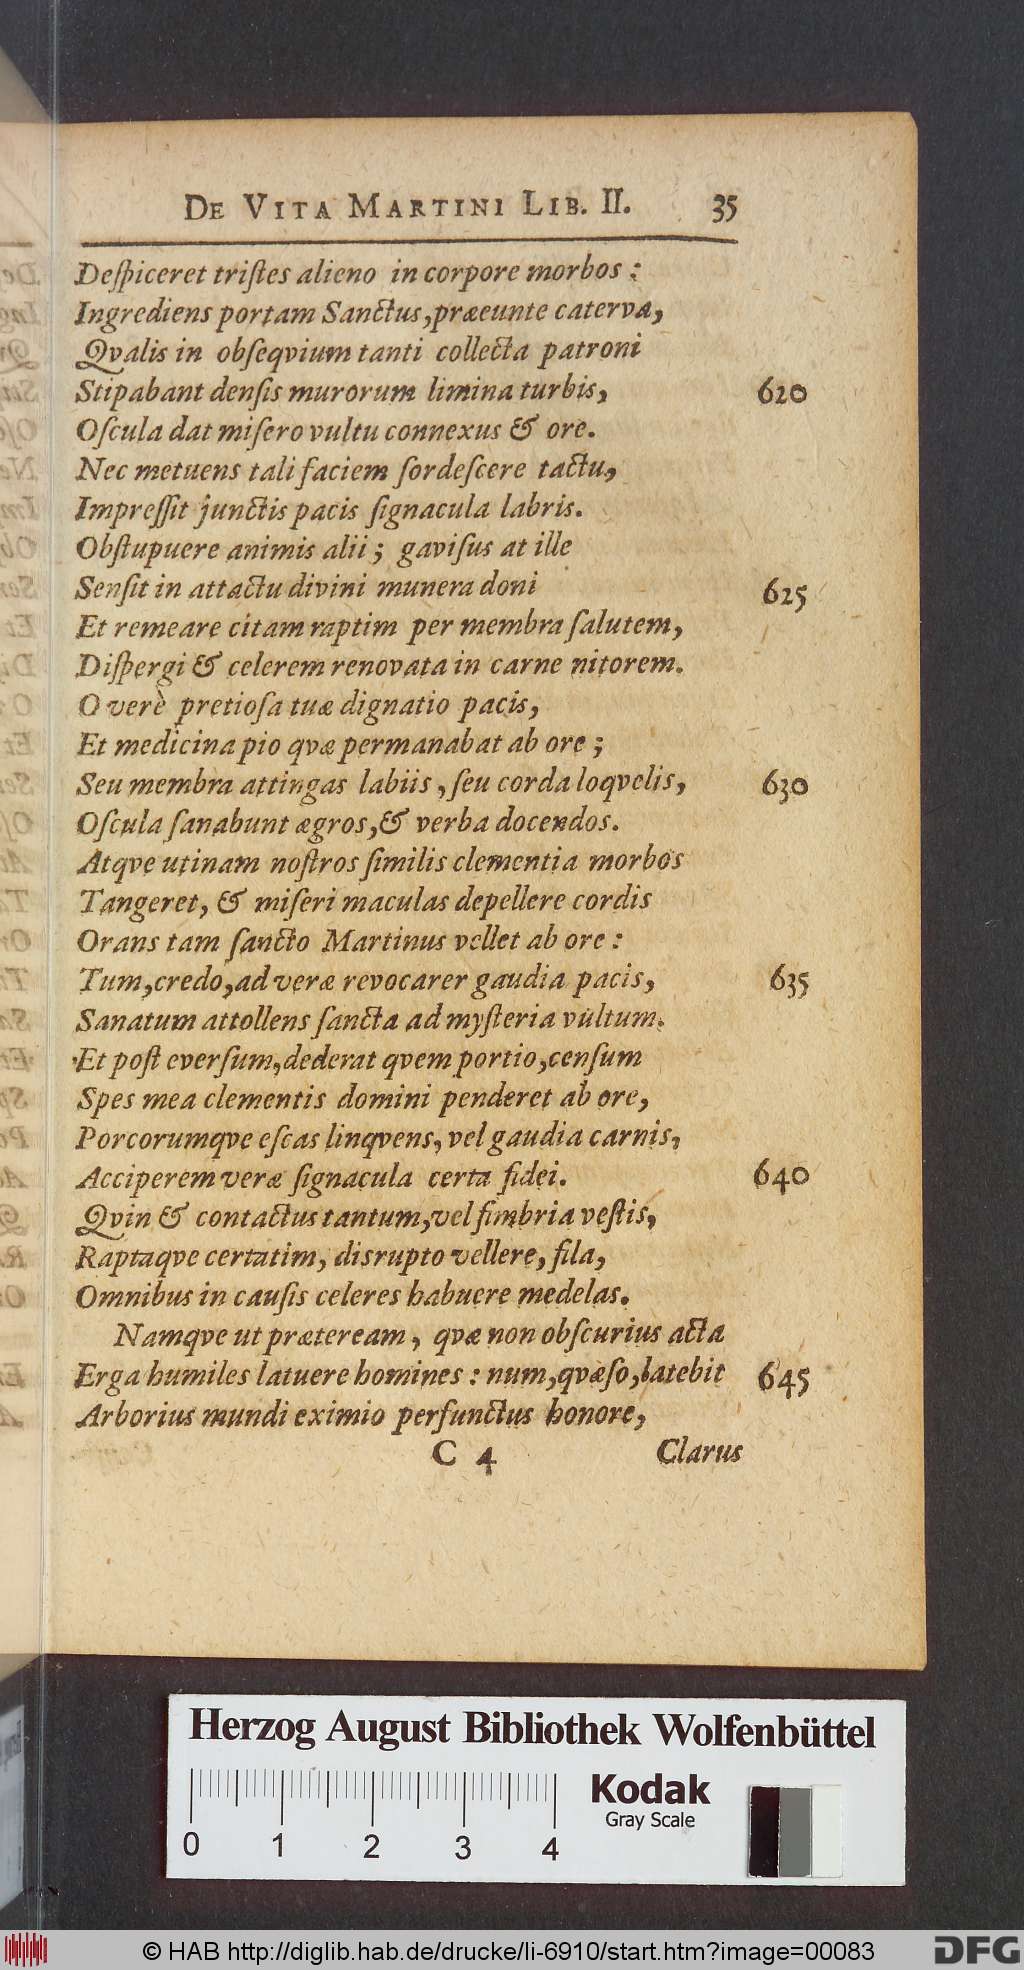 DE VITA MARTINI LIB. II. 35
Deſpiceret triſtes alieno in corpore morbos:
Ingrediens portam Sanctus, præeunte caterva,
Qvalis in obſeqvium tanti collecta patroni
Stipabant denſis murorum limina turbis, 620
Oſcula dat miſero vultu connexus & ore.
Nec metuens tali faciem ſordeſcere tactu,
Impreſſit junctis pacis ſignacula labris.
Obſtupuere animis alii; gaviſus at ille
Senſit in attactu divini munera doni 625
Et remeare citam raptim per membra ſalutem,
Diſpergi & celerem renovata in carne nitorem.
O verè pretioſa tuæ dignatio pacis,
Et medicina pio qvæ permanabat ab ore;
Seu membra attingas labiis, ſeu corda loqvelis, 630
Oſcula ſanabunt ægros, & verba docendos.
Atqve utinam noſtros ſimilis clementia morbos
Tangeret, & miſeri maculas depellere cordis
Orans tam ſancto Martinus vellet ab ore:
Tum, credo, ad veræ revocarer gaudia pacis, 635
Sanatum attollens ſancta ad myſteria vultum.
Et poſt everſum, dederat qvem portio, cenſum
Spes mea clementis domini penderet ab ore,
Porcorumqve eſcas linqvens, vel gaudia carnis,
Acciperem veræ ſignacula certa fidei. 640
Qvin & contactus tantum, vel fimbria veſtis,
Raptaqve certatim, disrupto vellere, fila,
Omnibus in cauſis celeres habuere medelas.
Namqve ut præteream, qvæ non obſcurius acta
Erga humiles latuere homines: num, qvæſo, latebit 645
Arborius mundi eximio perfunctus honore,
C 4 Clarus
Herzog August Bibliothek Wolfenbüttel
Kodak
Gray Scale
0 1 2 3 4
© HAB http://diglib.hab.de/drucke/li-6910/start.htm?image=00083
DFG